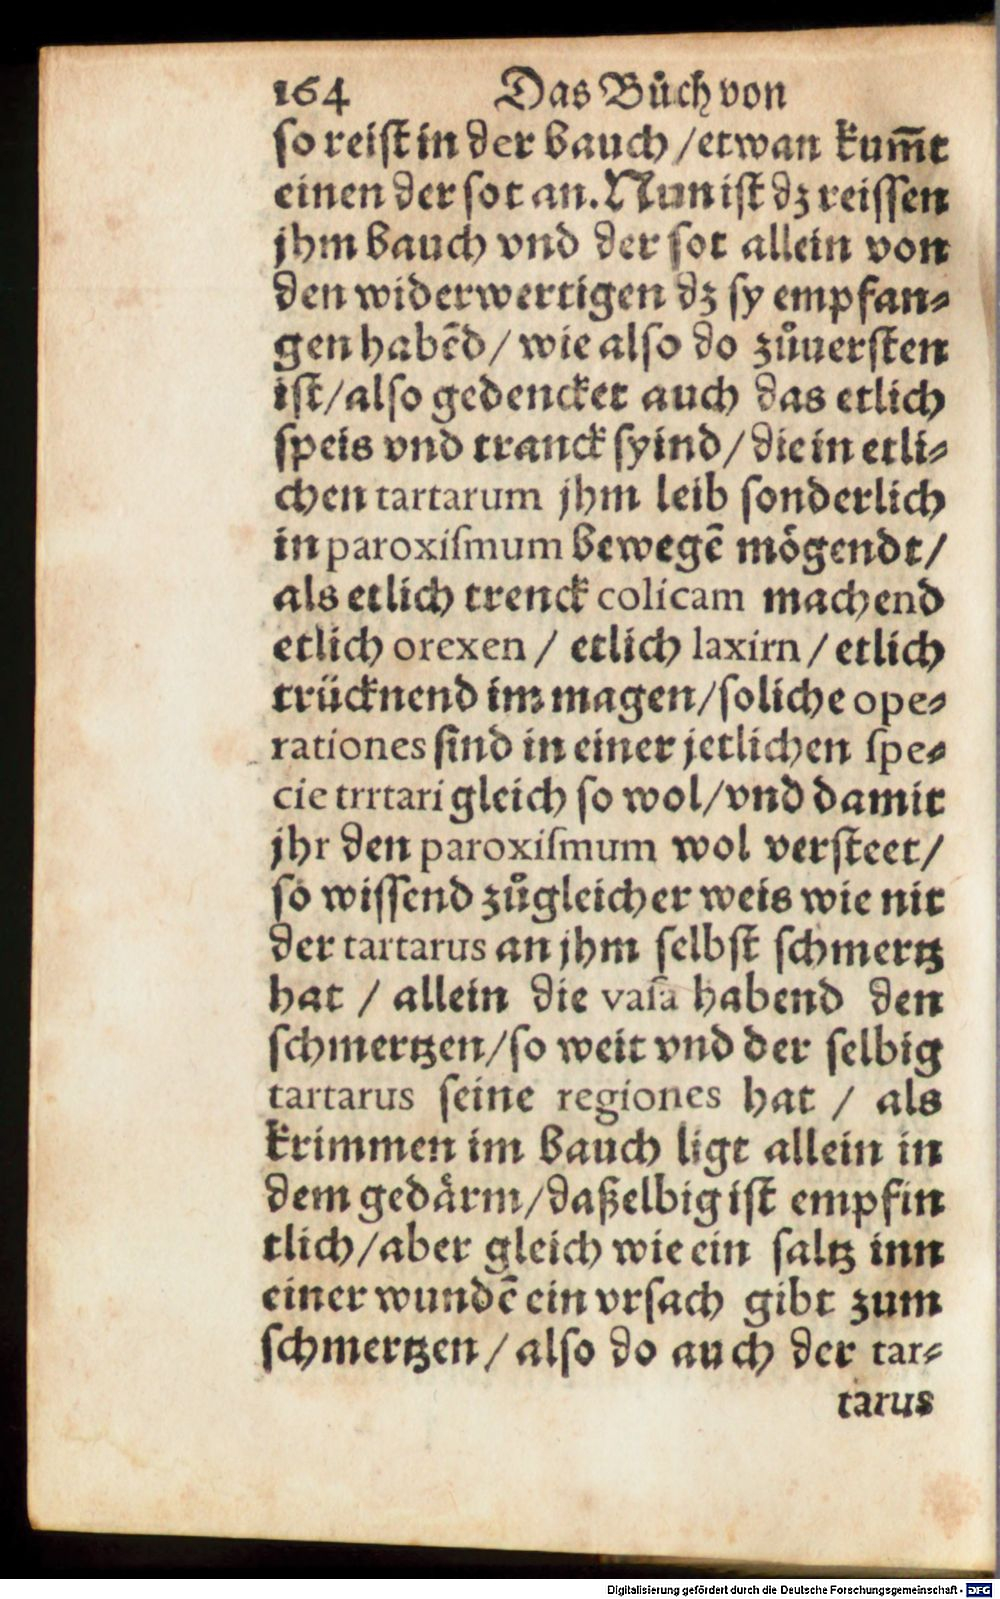 164 Das Bůch von
so reist in der bauch / etwan kum̄t
einen der sot an. Nun ist dz reissen
jhm bauch vnd der sot allein von
den widerwertigen dz sy empfan⸗
gen habẽd / wie also do zůuersten
ist / also gedencket auch das etlich
speis vnd tranck syind / die in etli⸗
chen tartarum jhm leib sonderlich
in paroxiſmum bewegẽ mögendt /
als etlich trenck colicam machend
etlich orexen / etlich laxirn / etlich
trücknend im magen / soliche ope⸗
rationes sind in einer jetlichen spe⸗
cie trrtari gleich so wol / vnd damit
jhr den paroxiſmum wol versteet /
so wissend zůgleicher weis wie nit
der tartarus an jhm selbst schmertz
hat / allein die vaſa habend den
schmertzen / so weit vnd der selbig
tartarus seine regiones hat / als
krimmen im bauch ligt allein in
dem gedärm / daßelbig ist empfin
tlich / aber gleich wie ein saltz inn
einer wundẽ ein vrsach gibt zum
schmertzen / also do auch der tar⸗
tarus
Digitalisierung gefördert durch die Deutsche Forschungsgemeinschaft - DFG